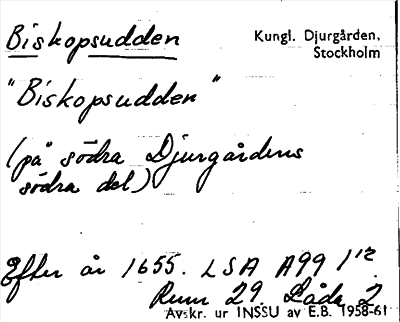 Biskopsudden
Kungl. Djurgården,
Stockholm
"Biskopsudden"
(på södra Djurgårdens
södra del)
Efter år 1655. LSA A99 1
Rum 29. Låda 2.
Avskr. ur INSSU av E.B. 1958-61